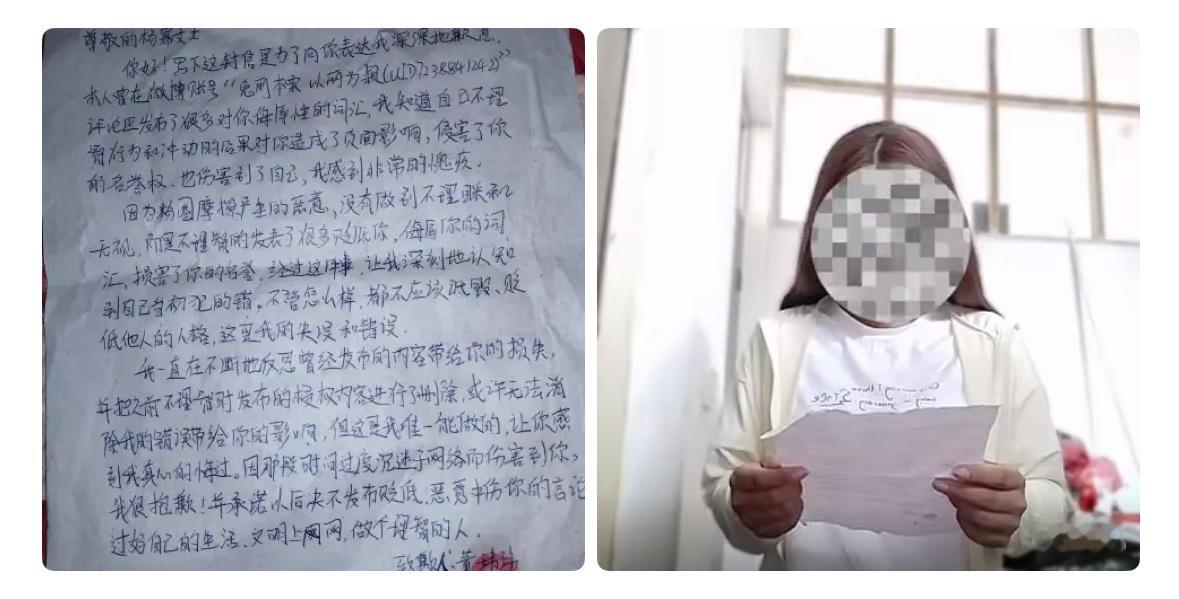 尊敬的杨幂女士
你好！写下这封信是为了向你表达我深深地歉意.
本人曾在微博账号“兔同本案以丽为
评论区发布了很多对你侮辱性的词汇,我知道自己不理
智行为和冲动的后果对你造成了负面影响,侵害了你
的名誉权.也伤害到了自己,我感到非常的愧疚.
因为粉圈摩擦产生的恶意,没有做到不理睬和
无视,而是不理智的发表了很多贬低你,侮辱你的词
汇,损害了你的名誉,经过这件事,让我深刻地认知
到自己当初犯的错。不管怎么样,都不应该诋毁、贬
低他人的人格,这是我的失误和错误.
我一直在不断地反思曾经发布的内容带给你的损失,
并把之前不理智时发布的侵权内容进行了删除,或许无法消
除我的错误带给你的影响,但这是我唯一能做的,让你感
到我真心的悔过。因那段时间过度沉迷于网络而伤害到你,
我很抱歉！并承诺以后决不发布贬低、恶意中伤你的言论
过好自己的生活、文明上网,做个理智的人.
致歉人:黄